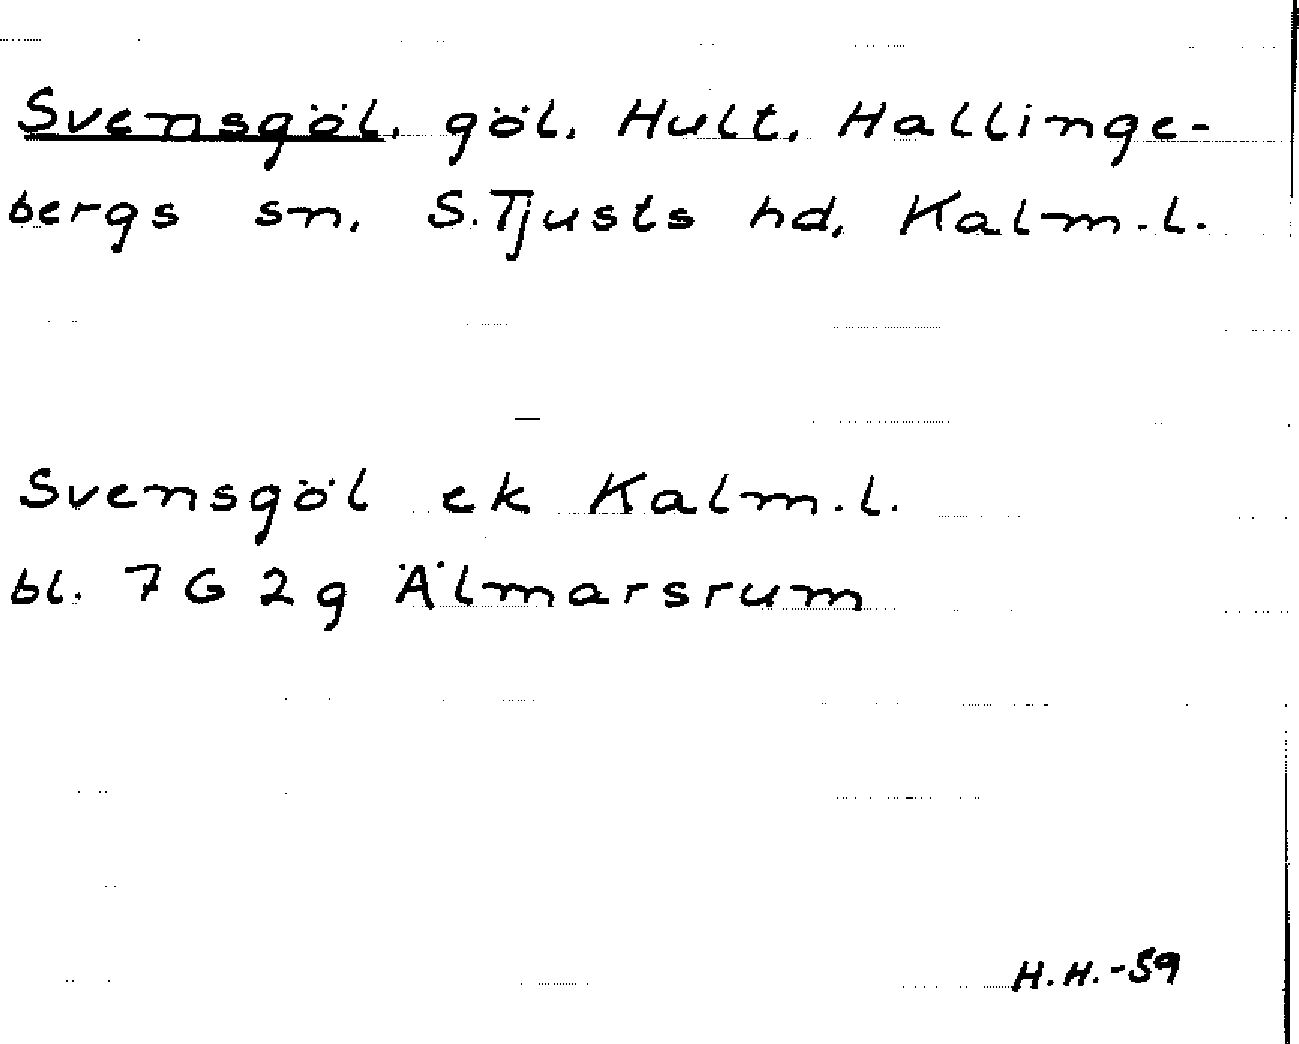 Svensgöl, göl, Hult, Hallinge-
bergs sn, S. Tjusts hd, Kalm.l.
Svensgöl ek Kalm.l.
bl. 7 G 2 g Älmarsrum
H.H.-59